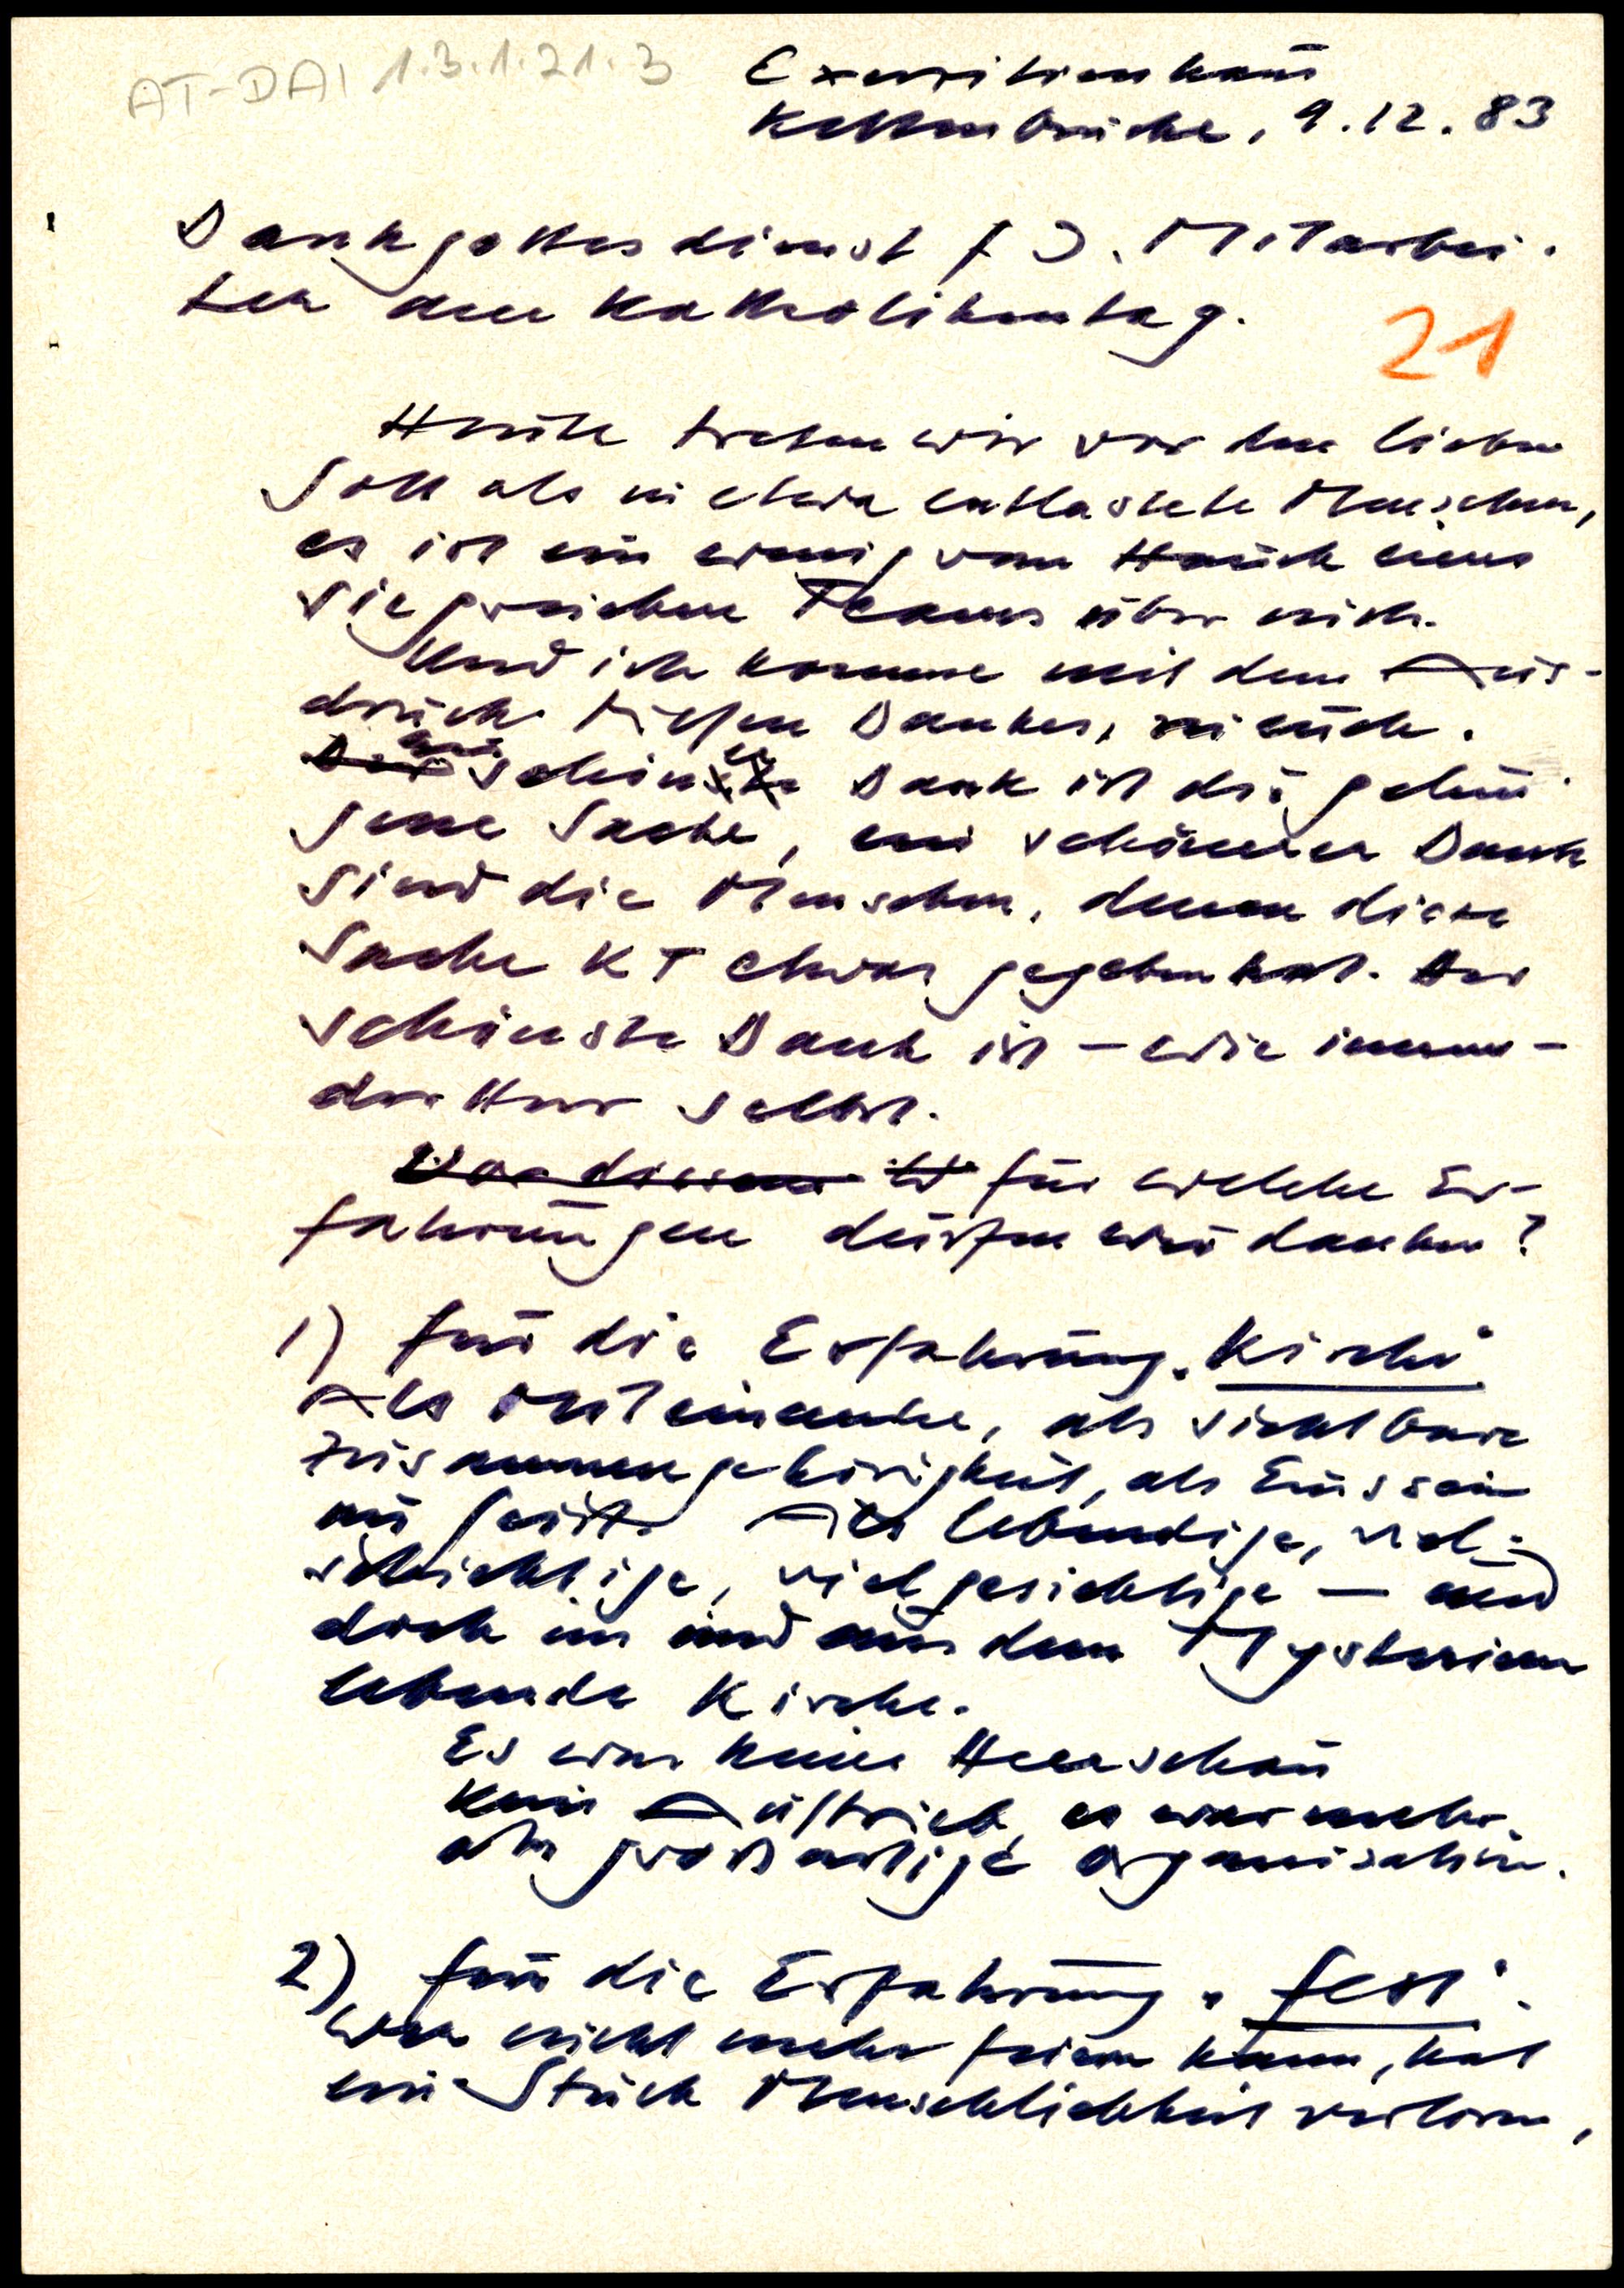 AT-DAI 1.3.1.21.3
Exerzitienhaus
Kettenbrücke, 9.12.83
Dankgottesdienst f d. Mitarbei-
ter am Katholikentag.
21
Heute treten wir vor den lieben
Gott als etwa entlastete Menschen,
es ist ein wenig vom Hauch eines
siegreichen Teams über mich.
Und ich komme mit dem Aus-
druck tiefen Dankes, zu euch.
Ein schöner Dank ist die gelun-
gene Sache, ein schönerer Dank
sind die Menschen, denen diese
Sache KT etwas gegeben hat. Der
schönste Dank ist – wie immer –
der Herr selbst.
Vor diesem W für welche Er-
fahrungen dürfen wir danken?
1) für die Erfahrung „Kirche"
Als Miteinander, als sichtbare
Zusammengehörigkeit, als Eins sein
im Geist. Als lebendige, viel-
schichtige, vielgesichtige – und
doch in und aus dem Mysterium
lebende Kirche.
Es war keine Heerschau
kein Auftrieb, es war mehr
als großartige Organisation.
2) für die Erfahrung „Fest".
Wer nicht mehr feiern kann, hat
ein Stück Menschlichkeit verloren,